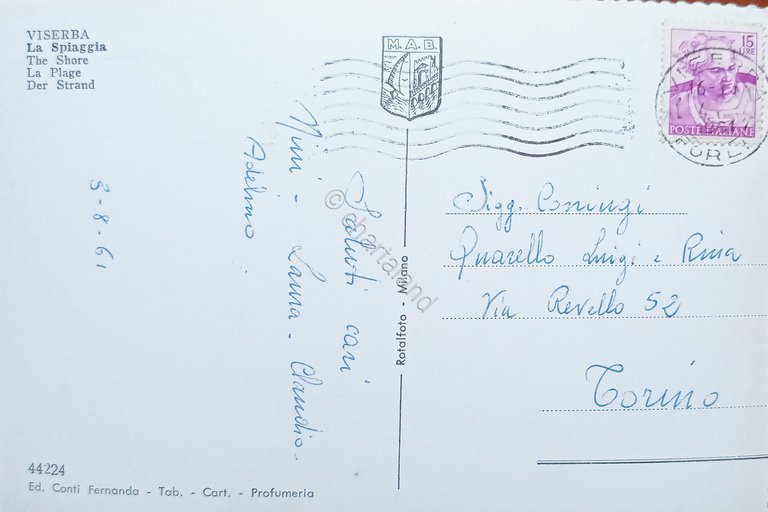 VISERBA
La Spiaggia
The Shore
La Plage
Der Strand
M.A.B.
15
LIRE
POSTE ITALIANE
3-8-61
Saluti cari
Nini - Laura - Claudio -
Adelmo
Sigg. Coniugi
Quarello Luigi e Rina
Via Revello 52
Torino
Rotalfoto - Milano
© chartaland
44224
Ed. Conti Fernanda - Tab. - Cart. - Profumeria